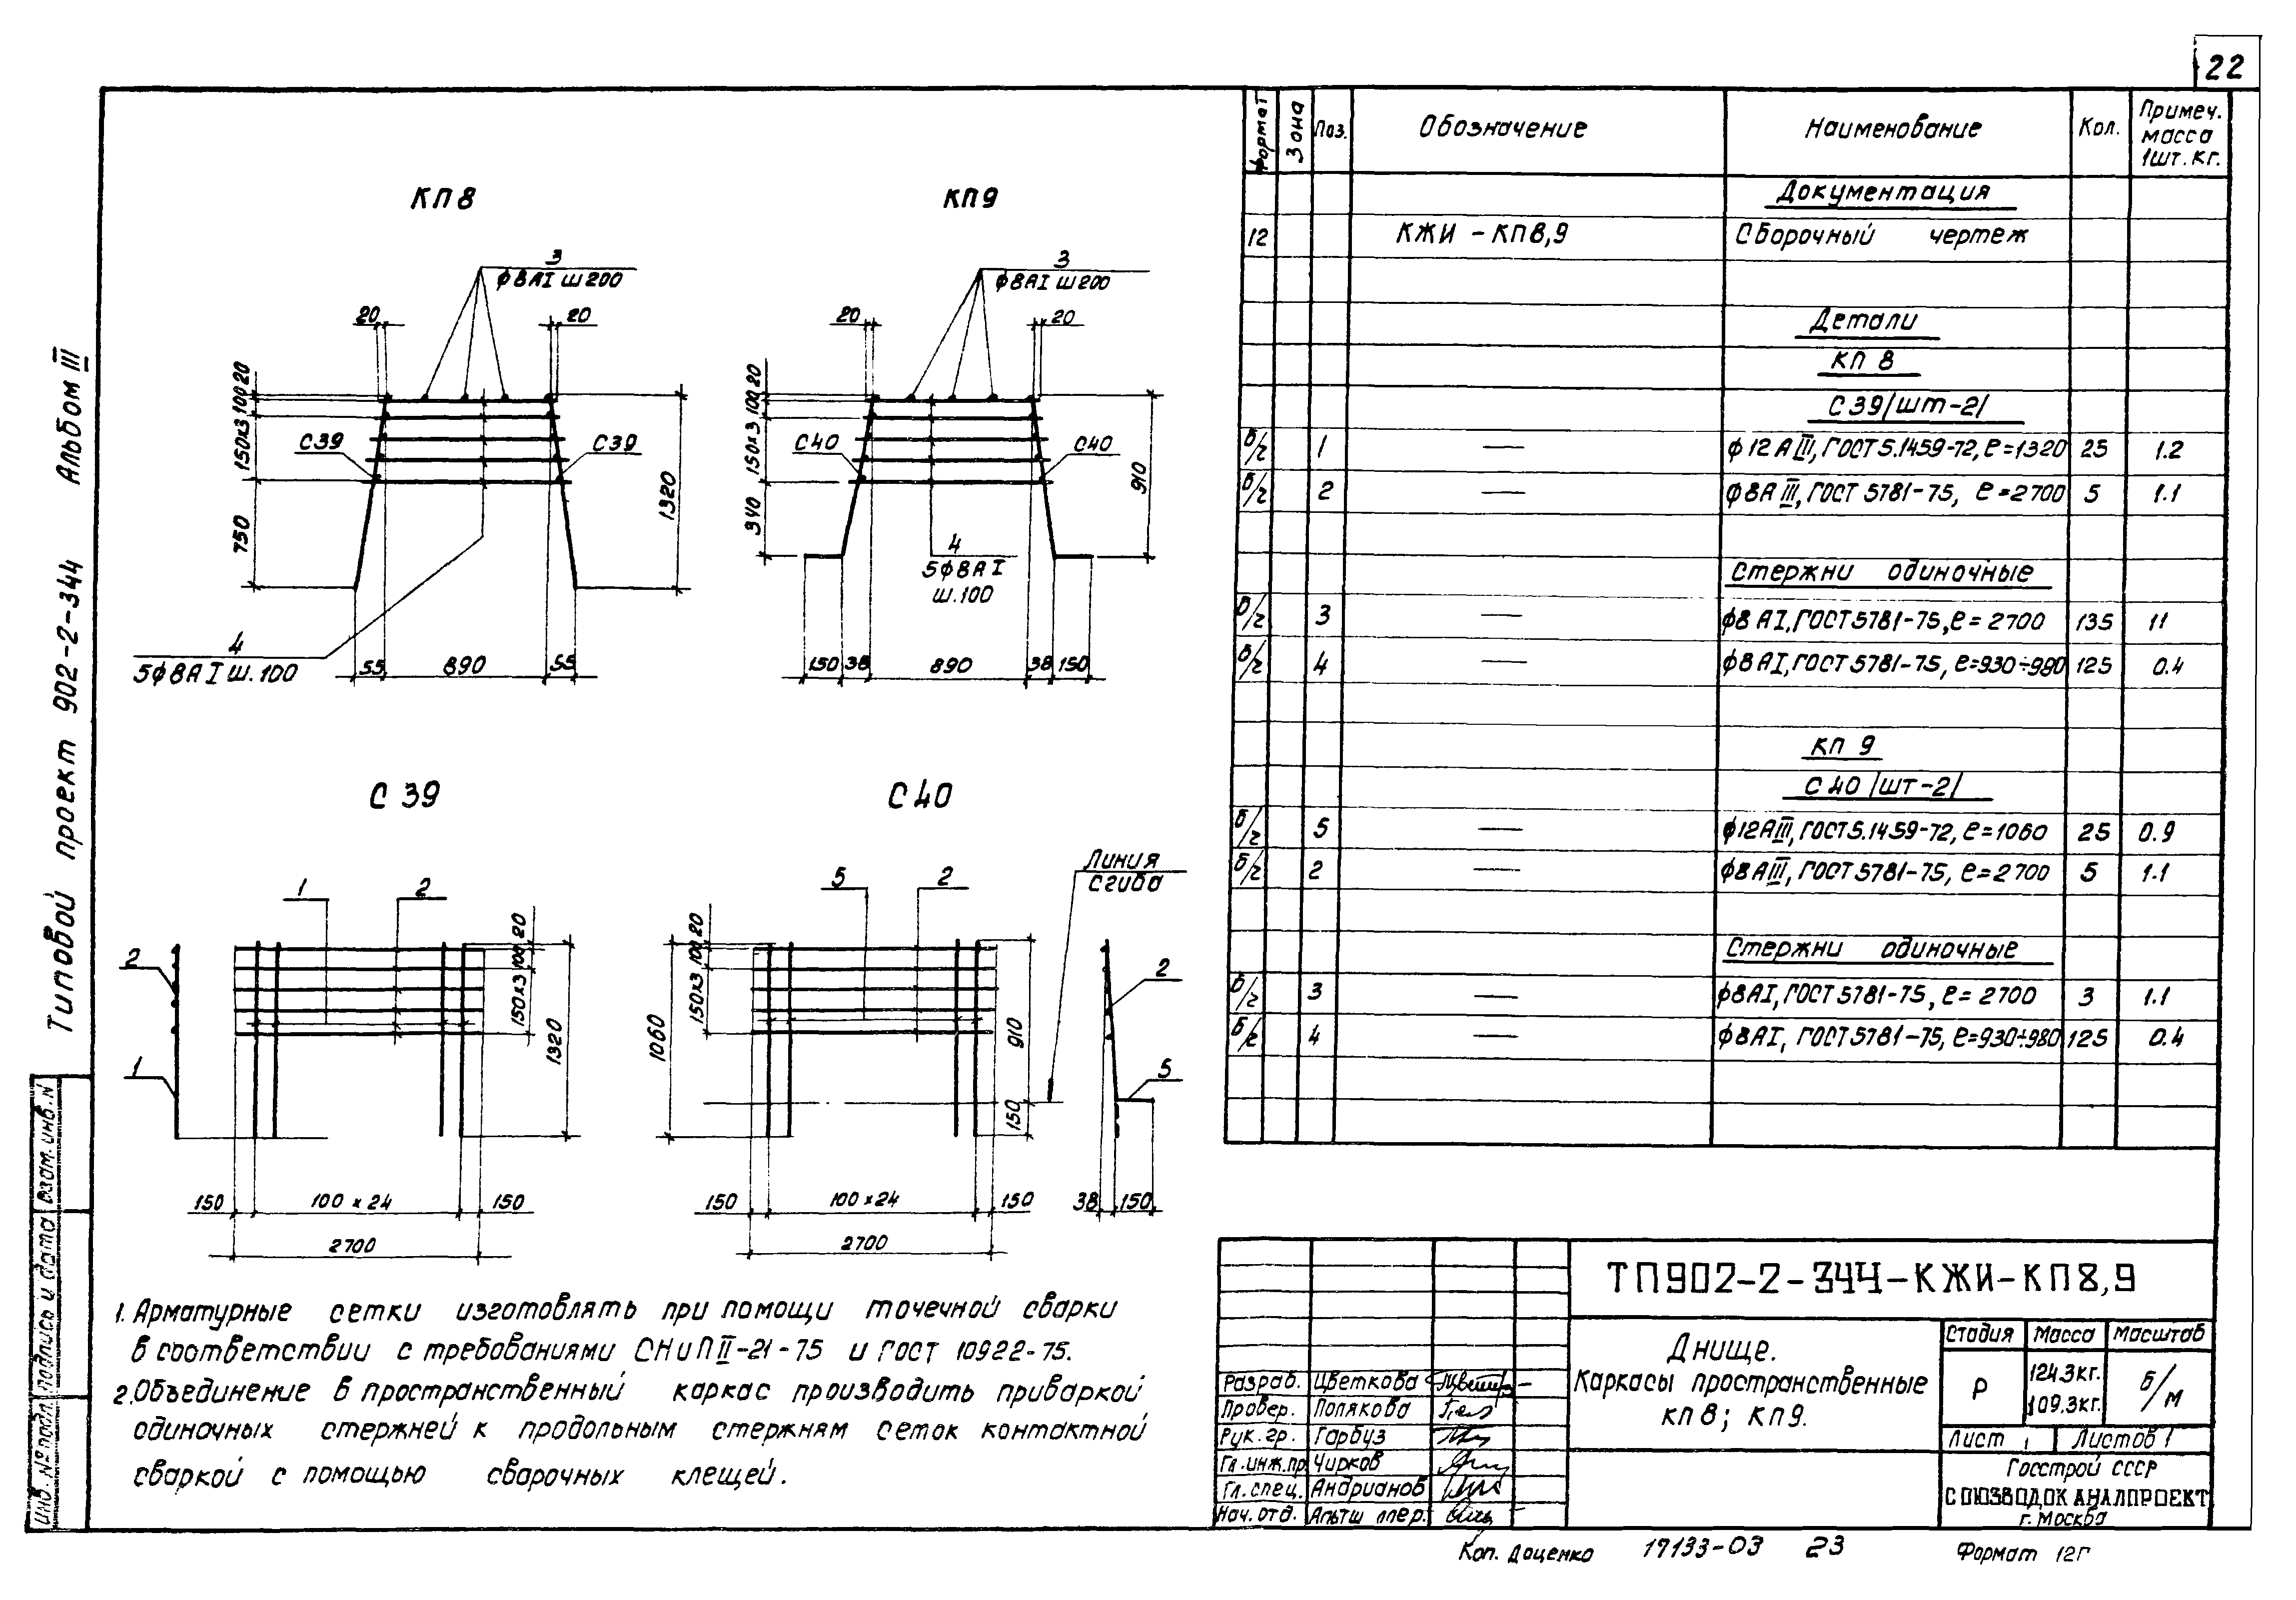 22
Типовой проект 902-2-344 Альбом III
КП 8
3
ф8АI Ш200
20
20
20
100
150х3
750
С39
С39
1320
4
5ф8АI Ш.100
55
890
55
КП9
3
ф8АI Ш200
20
20
20
100
150х3
340
С40
С40
910
4
5ф8АI
Ш.100
150
38
890
38
150
С 39
1
2
2
1
20
100
150х3
1320
150
100 х 24
150
2700
С 40
5
2
Линия
сгиба
20
100
150х3
1060
910
150
2
5
150
100 х 24
150
2700
38
150
1. Арматурные сетки изготовлять при помощи точечной сварки
в соответствии с требованиями СНиП II-21-75 и ГОСТ 10922-75.
2. Объединение в пространственный каркас производить приваркой
одиночных стержней к продольным стержням сеток контактной
сваркой с помощью сварочных клещей.
Формат Зона Поз. Обозначение Наименование Кол. Примеч. масса 1шт. кг.
Документация
12 КЖИ - КП8,9 Сборочный чертеж
Детали
КП 8
С39/шт-2/
б/ч 1 — ф 12 А III, ГОСТ 5.1459-72, ℓ=1320 25 1.2
б/ч 2 — ф8А III, ГОСТ 5781-75, ℓ=2700 5 1.1
Стержни одиночные
б/ч 3 — ф8 АI, ГОСТ 5781-75, ℓ= 2700 135 11
б/ч 4 — ф8 АI, ГОСТ 5781-75, ℓ=930÷980 125 0.4
КП 9
С 40 /шт-2/
б/ч 5 — ф12АIII, ГОСТ 5.1459-72, ℓ=1060 25 0.9
б/ч 2 — ф8АIII, ГОСТ 5781-75, ℓ=2700 5 1.1
Стержни одиночные
б/ч 3 — ф8АI, ГОСТ 5781-75, ℓ= 2700 3 1.1
б/ч 4 — ф8АI, ГОСТ 5781-75, ℓ=930÷980 125 0.4
ТП902-2-344-КЖИ-КП8,9
Днище.
Каркасы пространственные
КП 8; КП9.
Стадия Масса Масштаб
Р 124.3кг. 109.3кг. б/м
Лист 1 Листов 1
Госстрой СССР
СОЮЗВОДОКАНАЛПРОЕКТ
г. Москва
Разраб. Цветкова
Провер. Полякова
Рук. гр. Гарбуз
Гл. инж. пр. Чирков
Гл. спец. Андрианов
Нач. отд. Альтшулер.
Инв. № подл. Подпись и дата Взам. инв. N
Коп. Доценко 17133-03 23 Формат 12Г